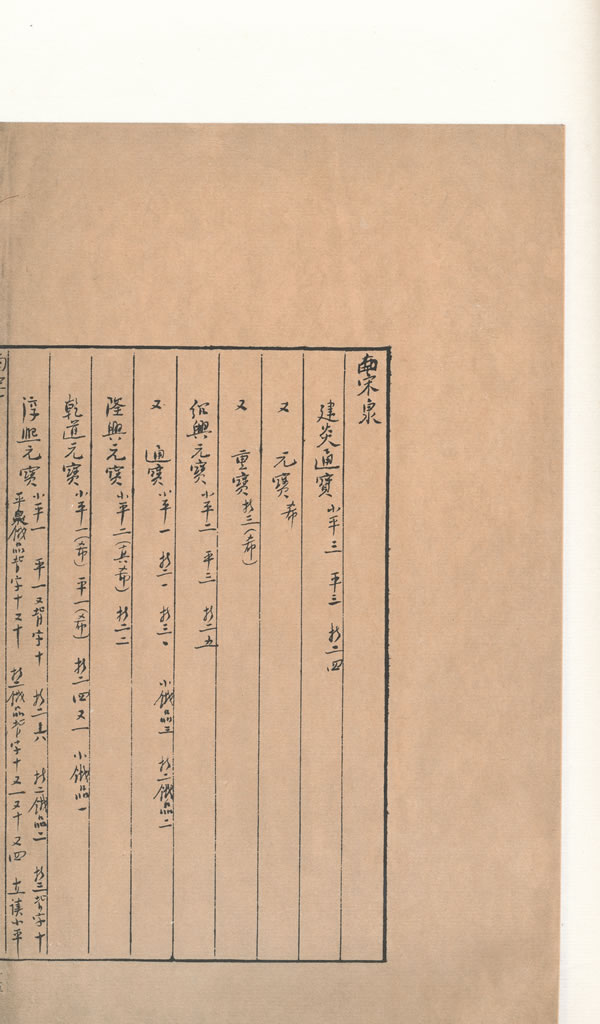 南宋泉
建炎通寶 小平三 平三 折二四
又 元寶 希
又 重寶 折三(希)
紹興元寶 小平二 平三 折二五
又 通寶 小平一 折二一 折三一 小鐵品三 折二鐵品二
隆興元寶 小平二(真希) 折二二
乾道元寶 小平一(希) 平一(希) 折二四又一 小鐵品一
淳熙元寶 小平一 平一又背字十 折二六 折二鐵品二 折三背字十
平泉鐵品背字十又十 折二鐵品背字十又一又十又四 直讀小平